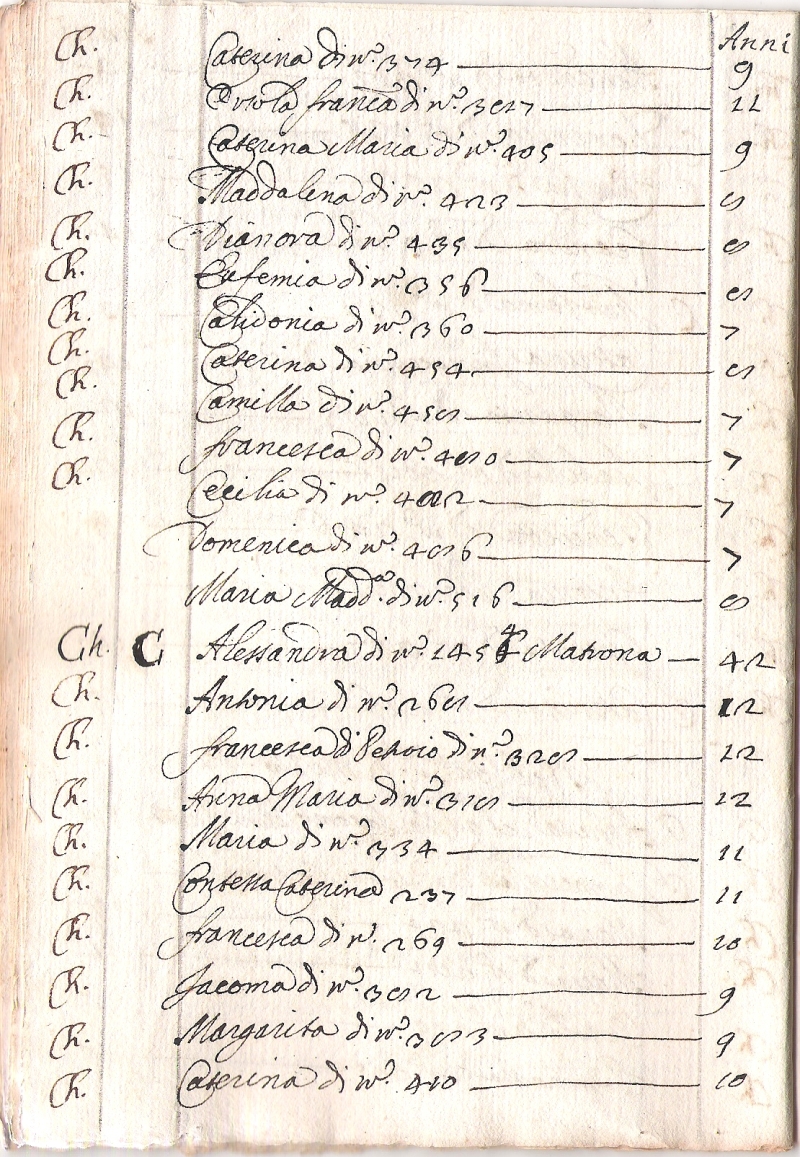 Anni
Ch. Caterina di nº. 374 — 9
Ch. Orsola franca di nº. 387 — 11
Ch. Caterina Maria di nº. 405 — 9
Ch. Maddalena di nº. 423 — 8
Ch. Dianora di nº. 435 — 8
Ch. Eufemia di nº. 356 — 8
Ch. Calidonia di nº. 360 — 7
Ch. Caterina di nº. 454 — 8
Ch. Camilla di nº. 458 — 7
Ch. francesca di nº. 480 — 7
Ch. Cecilia di nº. 482 — 7
Domenica di nº. 486 — 7
Maria Madd.ª di nº. 516 — 8
Ch. C Alessandra di nº. Matrona — 42
Ch. Antonia di nº. 268 — 12
Ch. francesca di di nº. 328 — 12
Ch. Anna Maria di nº. 318 — 12
Ch. Maria di nº. 334 — 11
Ch. Contessa Caterina 237 — 11
Ch. francesca di nº. 269 — 10
Ch. Jacoma di nº. 382 — 9
Ch. Margarita di nº. 383 — 9
Ch. Caterina di nº. 410 — 10